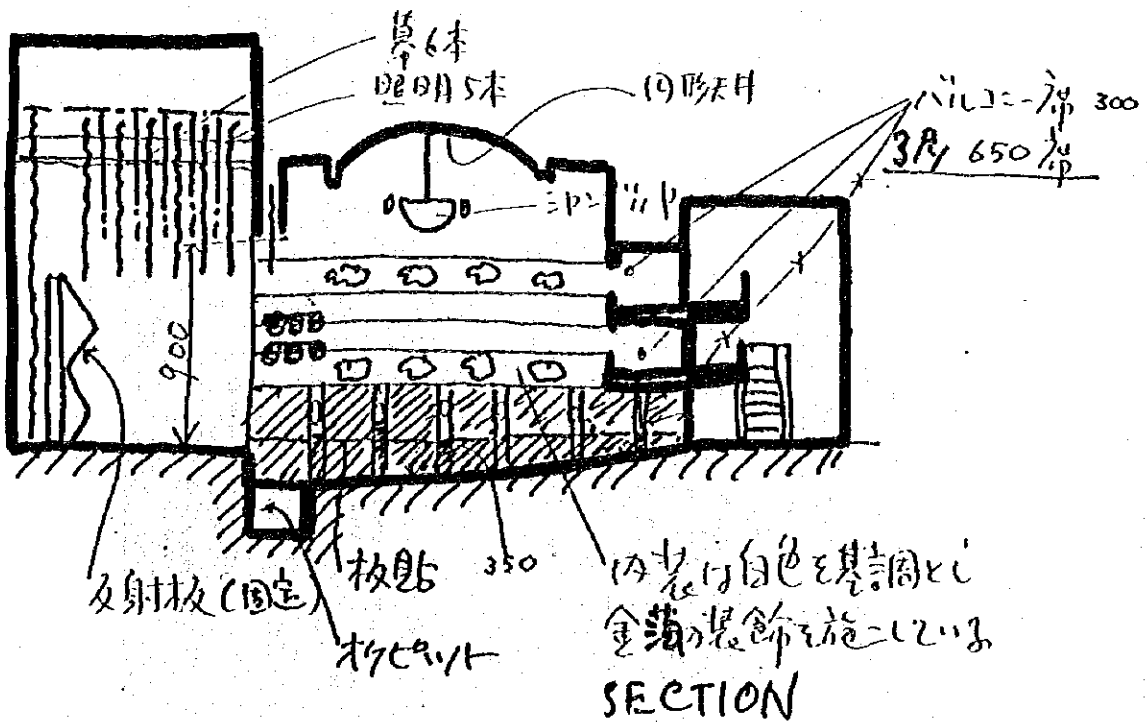 幕6本
照明5本
円形天井
バルコニー席 300
計 650席
シャンデリヤ
900
反射板(固定)
板貼
350
オケピット
内装は白色を基調とし
金箔の装飾を施こしている
SECTION